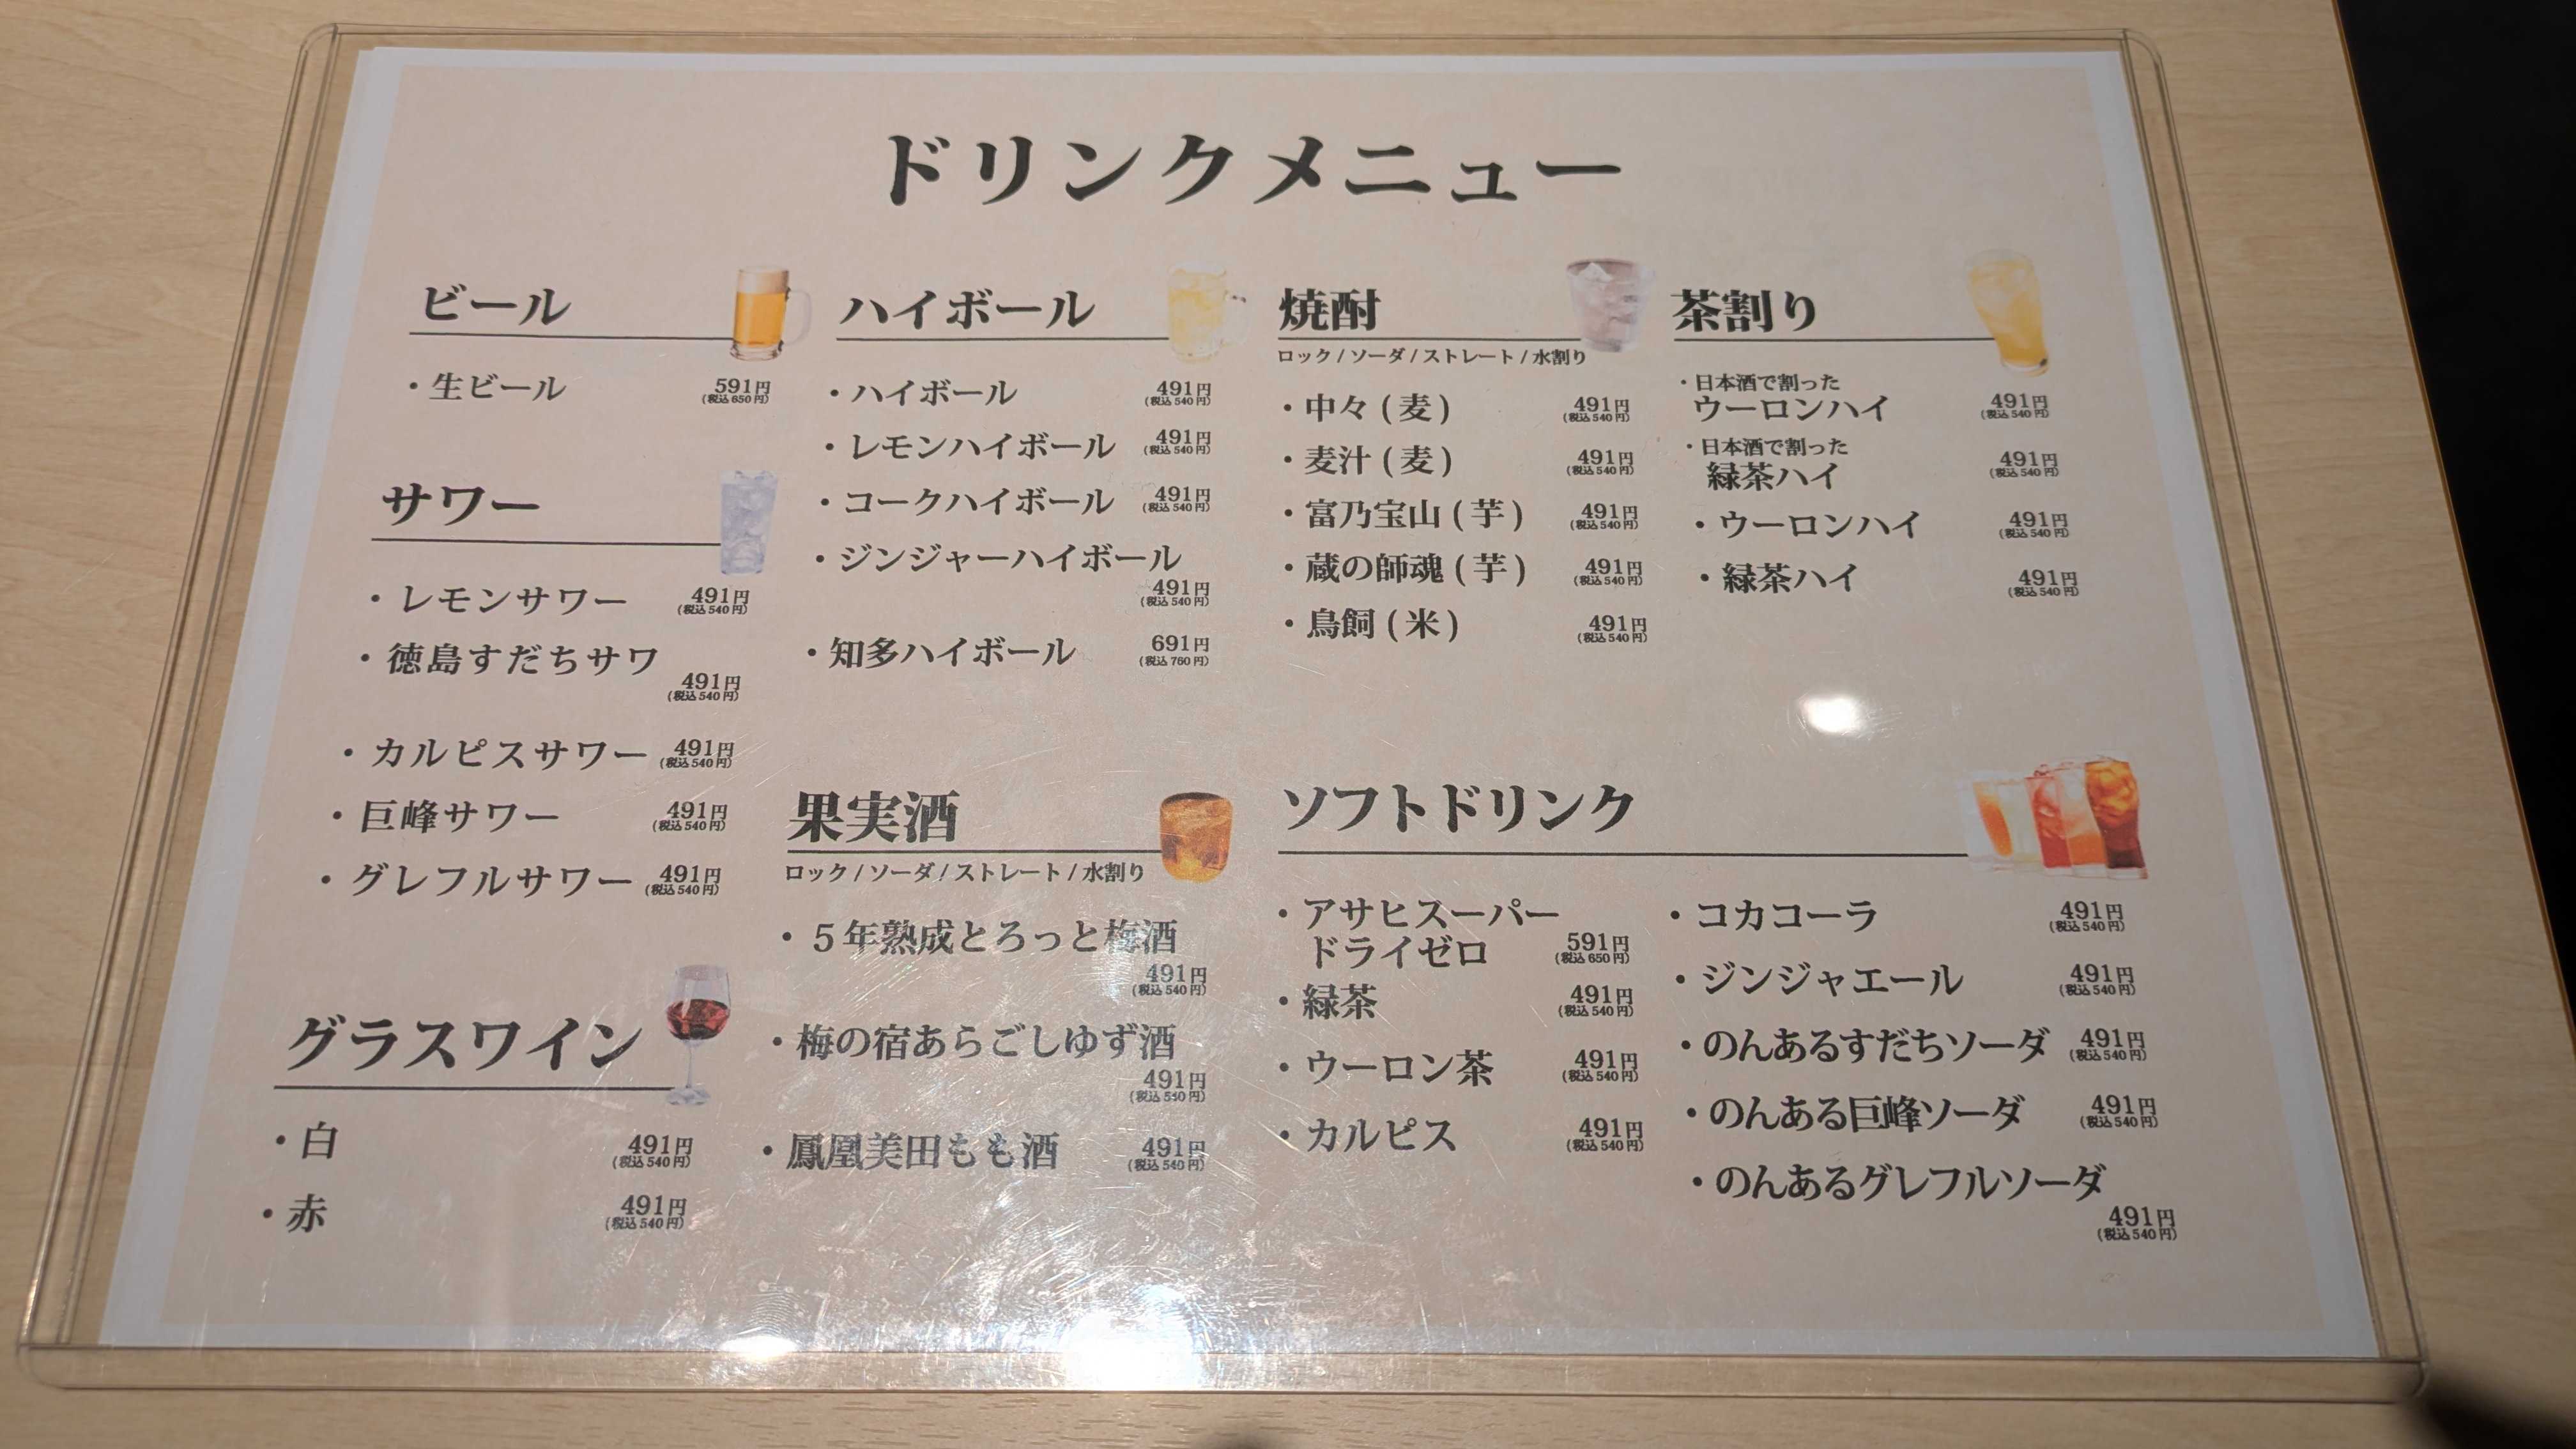 ドリンクメニュー
ビール
・生ビール 591円
(税込650円)
サワー
・レモンサワー 491円
(税込540円)
・徳島すだちサワ
491円
(税込540円)
・カルピスサワー 491円
(税込540円)
・巨峰サワー 491円
(税込540円)
・グレフルサワー 491円
(税込540円)
グラスワイン
・白 491円
(税込540円)
・赤 491円
(税込540円)
ハイボール
・ハイボール 491円
(税込540円)
・レモンハイボール 491円
(税込540円)
・コークハイボール 491円
(税込540円)
・ジンジャーハイボール
491円
(税込540円)
・知多ハイボール 691円
(税込760円)
果実酒
ロック/ソーダ/ストレート/水割り
・5年熟成とろっと梅酒
491円
(税込540円)
・梅の宿あらごしゆず酒
491円
(税込540円)
・鳳凰美田もも酒 491円
(税込540円)
焼酎
ロック/ソーダ/ストレート/水割り
・中々(麦) 491円
(税込540円)
・麦汁(麦) 491円
(税込540円)
・富乃宝山(芋) 491円
(税込540円)
・蔵の師魂(芋) 491円
(税込540円)
・鳥飼(米) 491円
(税込540円)
茶割り
・日本酒で割った
ウーロンハイ 491円
(税込540円)
・日本酒で割った
緑茶ハイ 491円
(税込540円)
・ウーロンハイ 491円
(税込540円)
・緑茶ハイ 491円
(税込540円)
ソフトドリンク
・アサヒスーパー
ドライゼロ 591円
(税込650円)
・緑茶 491円
(税込540円)
・ウーロン茶 491円
(税込540円)
・カルピス 491円
(税込540円)
・コカコーラ 491円
(税込540円)
・ジンジャエール 491円
(税込540円)
・のんあるすだちソーダ 491円
(税込540円)
・のんある巨峰ソーダ 491円
(税込540円)
・のんあるグレフルソーダ
491円
(税込540円)